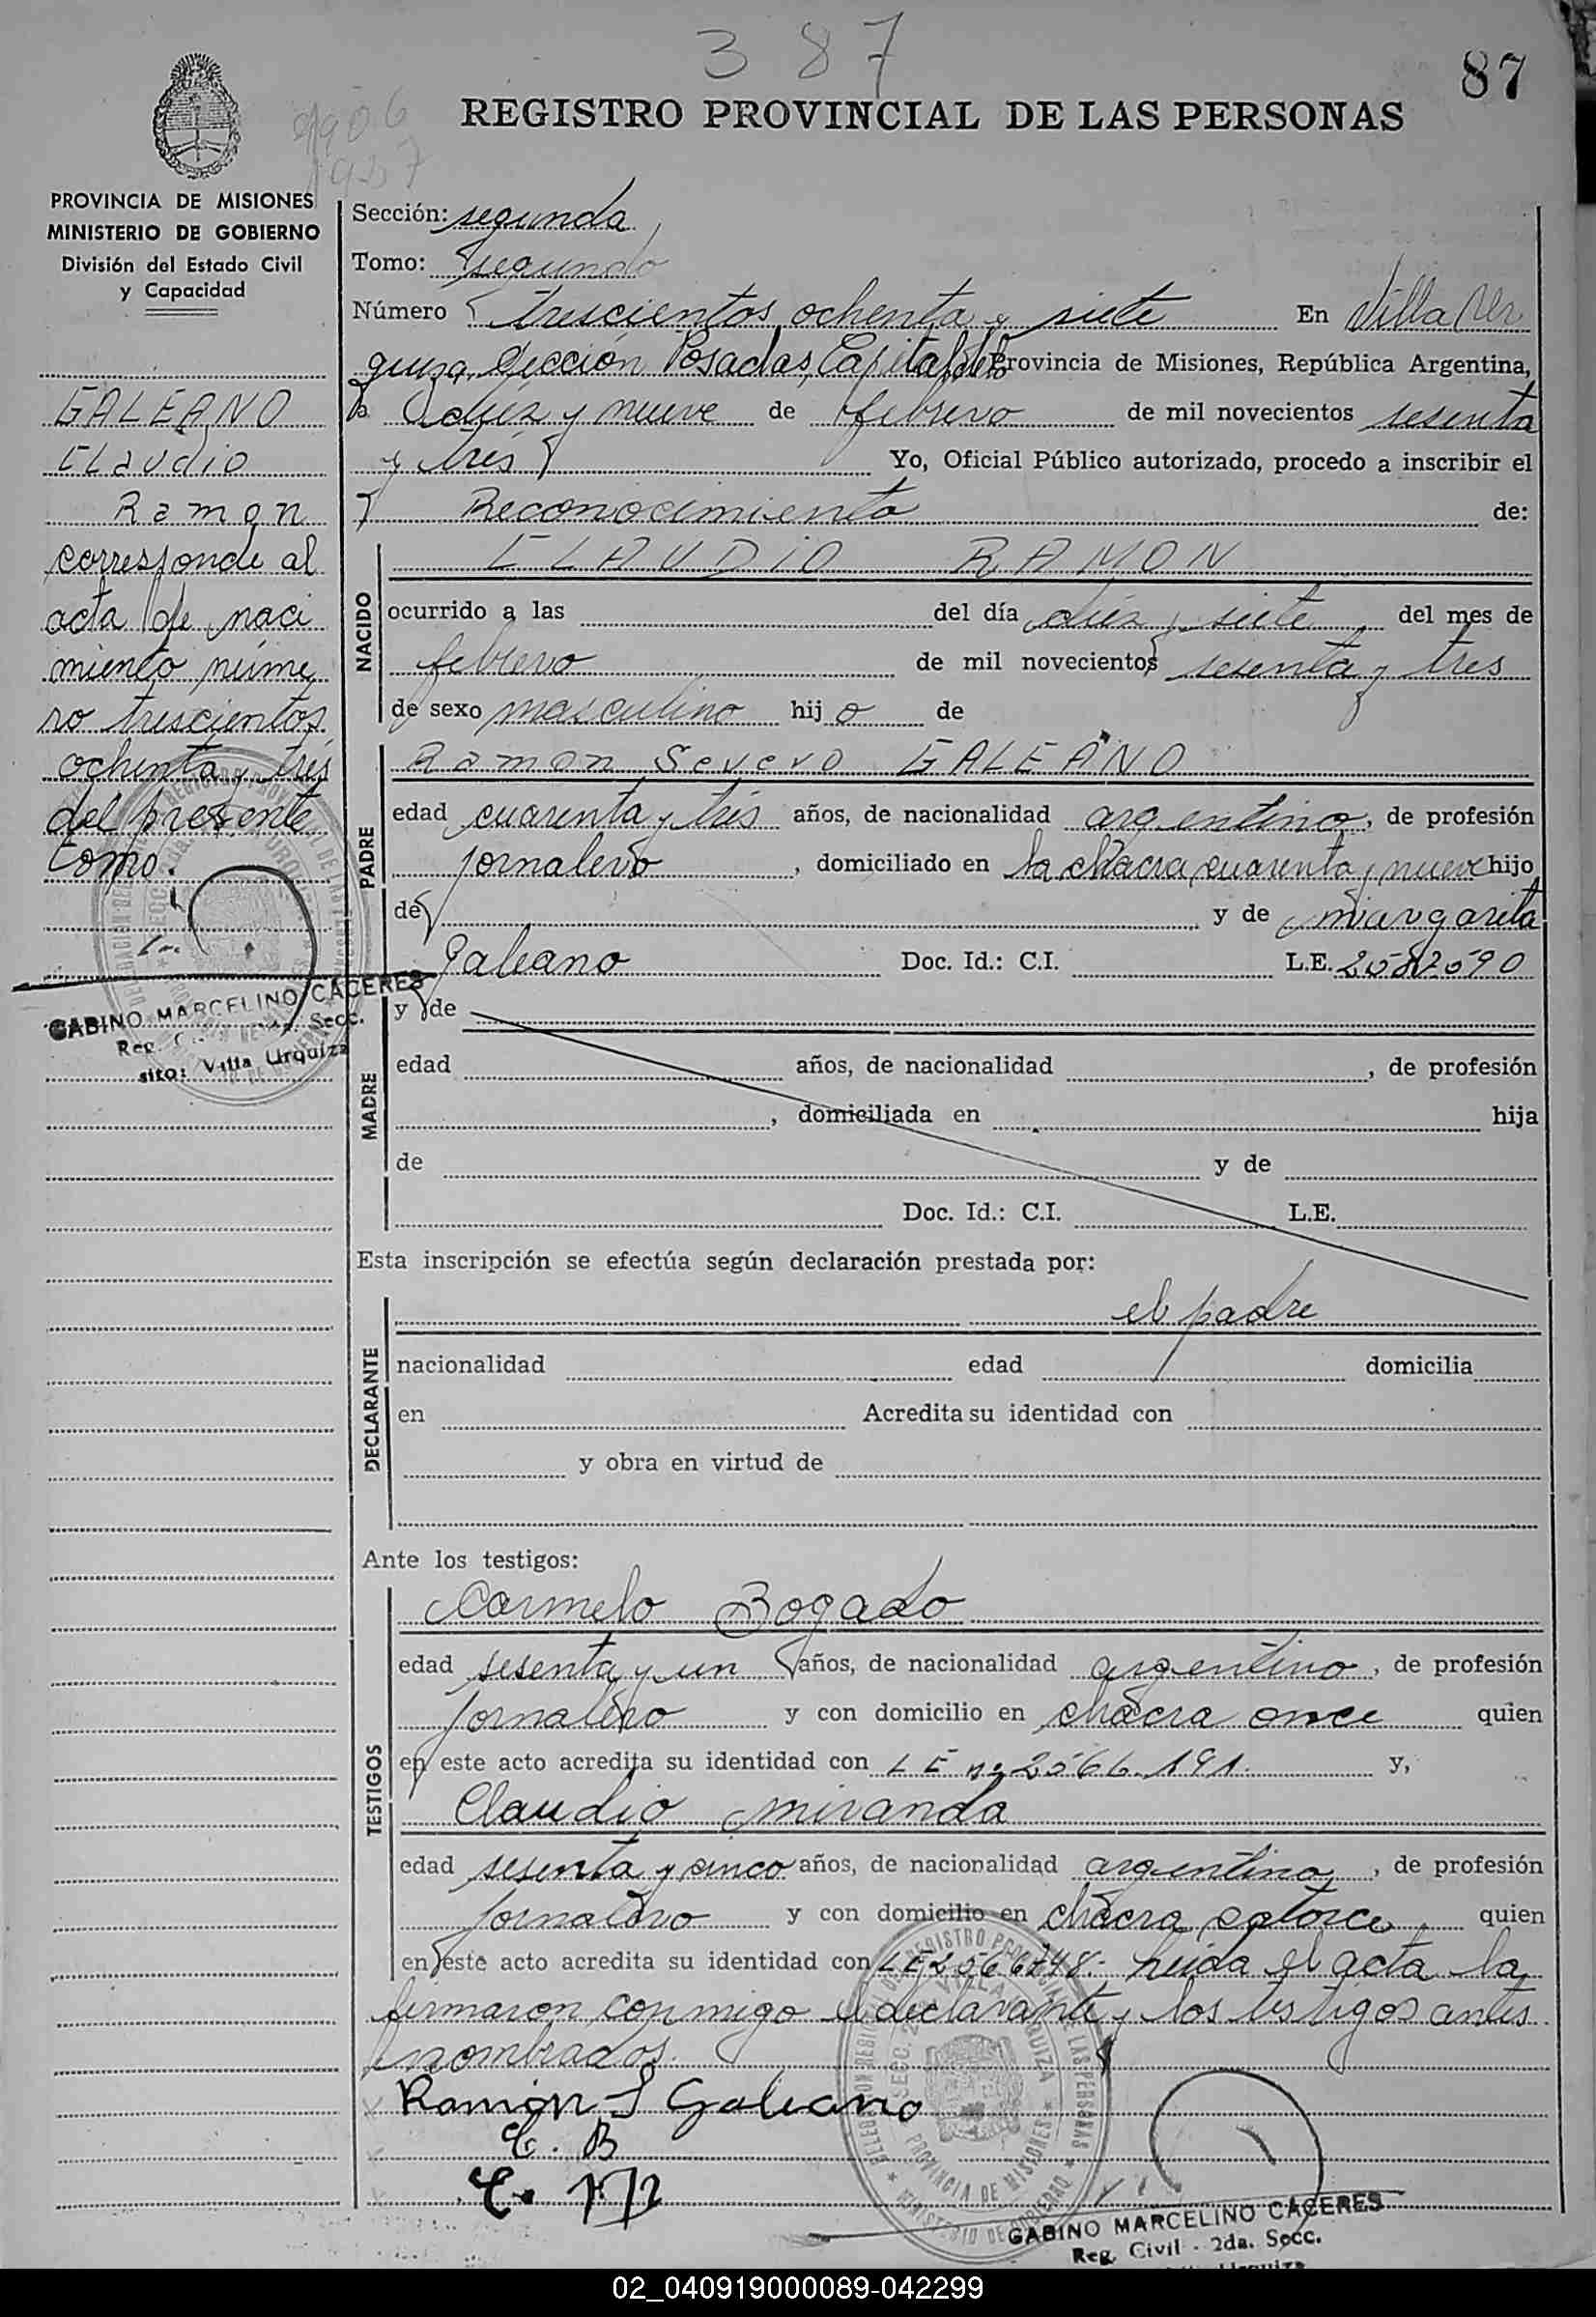 387
87
REGISTRO PROVINCIAL DE LAS PERSONAS
PROVINCIA DE MISIONES
MINISTERIO DE GOBIERNO
División del Estado Civil
y Capacidad
GALEANO
CLaudio
Ramon
corresponde al
acta de naci
miento núme
ro trescientos
ochenta y tres
del presente
tomo.
GABINO MARCELINO CACERES
Villa Urquiza
Sección: segunda
Tomo: segundo
Número trescientos ochenta y siete En Villa Ur
quiza, Sección Posadas, Capital de la Provincia de Misiones, República Argentina,
a diez y nueve de febrero de mil novecientos sesenta
y tres Yo, Oficial Público autorizado, procedo a inscribir el
Reconocimiento de:
NACIDO
CLAUDIO RAMON
ocurrido a las del día diez y siete del mes de
febrero de mil novecientos sesenta y tres
de sexo masculino hijo de
PADRE
Ramon Severo GALEANO
edad cuarenta y tres años, de nacionalidad argentino, de profesión
jornalero, domiciliado en la chacra cuarenta y nueve hijo
de y de margarita
Galeano Doc. Id.: C.I. L.E. 2582590
MADRE
y de
edad años, de nacionalidad , de profesión
, domiciliada en hija
de y de
Doc. Id.: C.I. L.E.
Esta inscripción se efectúa según declaración prestada por:
DECLARANTE
el padre
nacionalidad edad domicilia
en Acredita su identidad con
y obra en virtud de
Ante los testigos:
TESTIGOS
Carmelo Bogado
edad sesenta y un años, de nacionalidad argentino, de profesión
jornalero y con domicilio en chacra once quien
en este acto acredita su identidad con LE nº 2566.191. y,
Claudio miranda
edad sesenta y cinco años, de nacionalidad argentino, de profesión
jornalero y con domicilio en chacra catorce quien
en este acto acredita su identidad con LE 2566748.- Leída el acta la
firmaron conmigo el declarante y los testigos antes
nombrados.
Ramón S Galeano
C. B
C. M
GABINO MARCELINO CACERES
Reg. Civil - 2da. Secc.
02_040919000089-042299